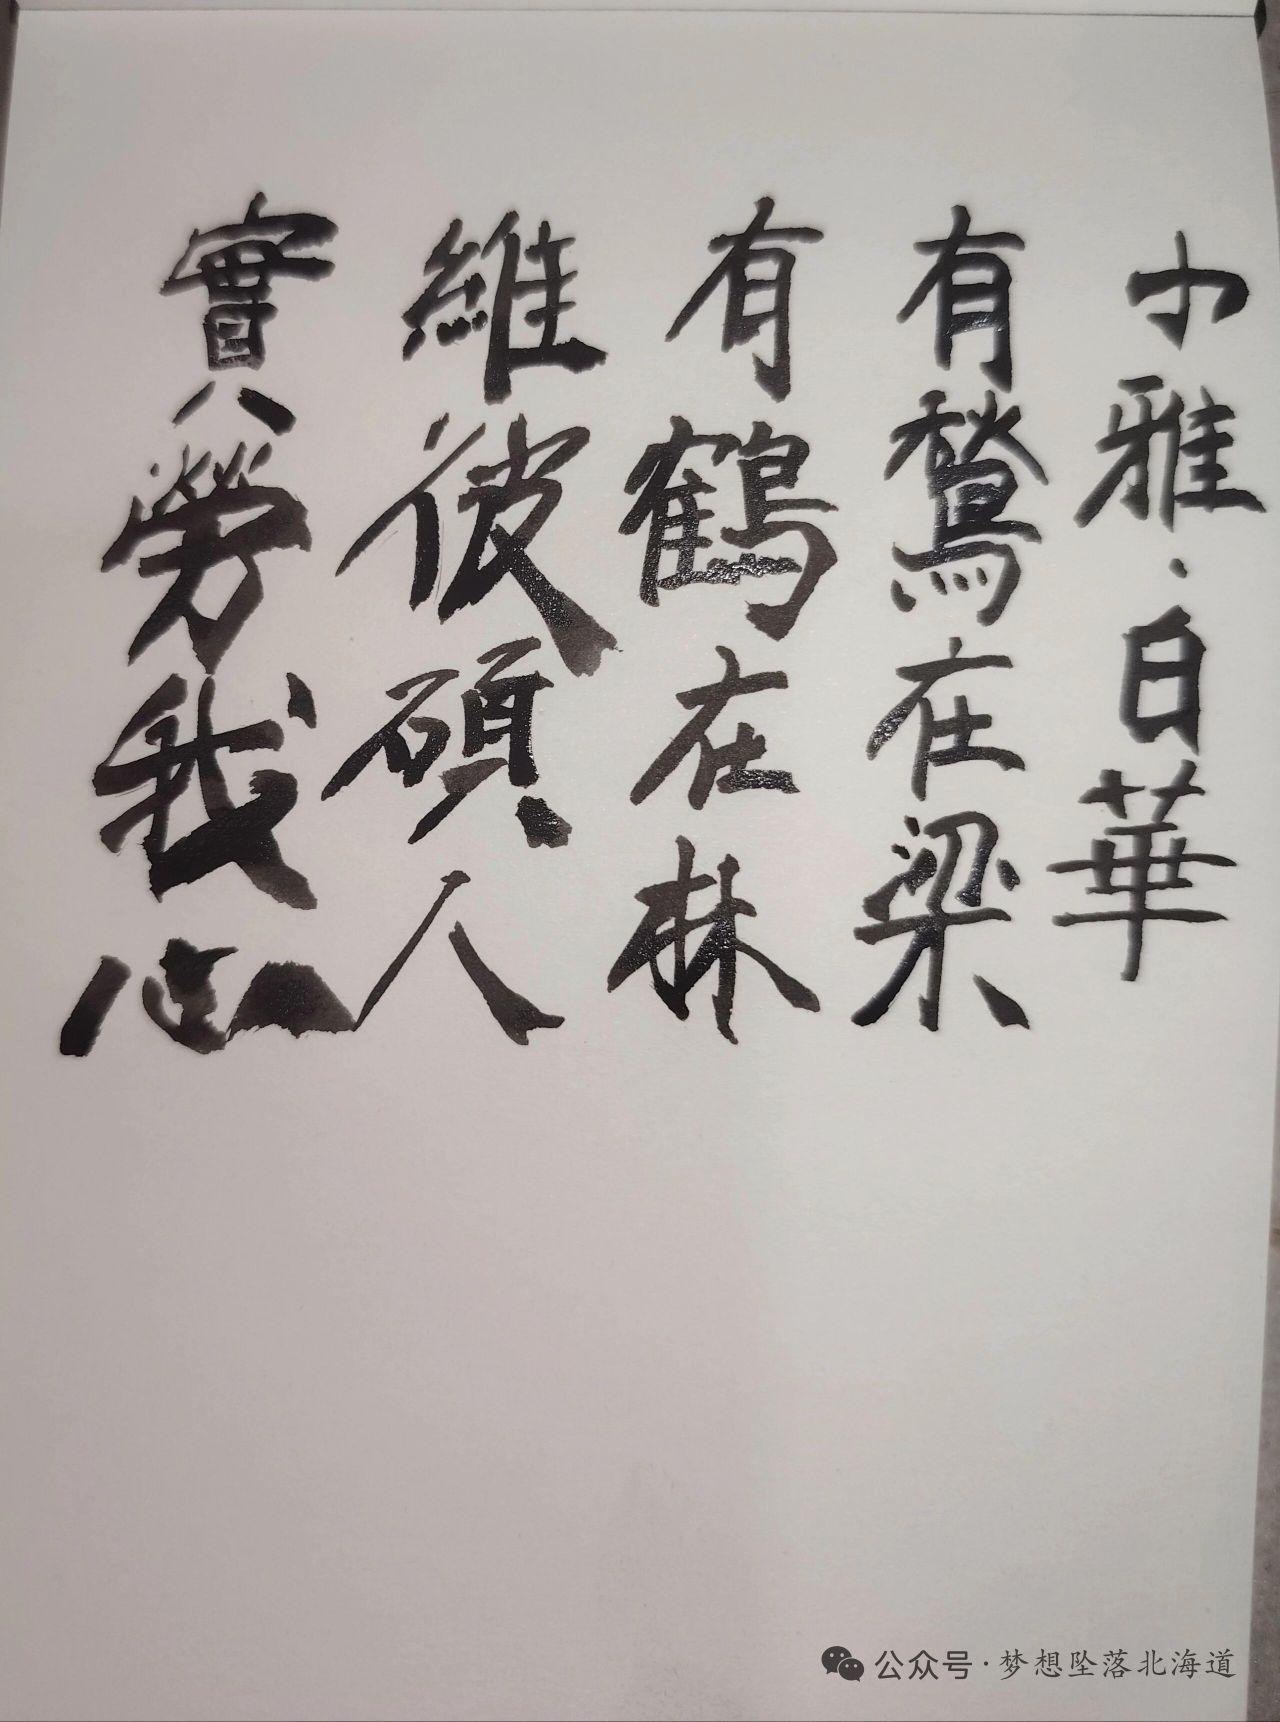 小雅·白華
有鶖在梁
有鶴在林
維彼碩人
實勞我心
公众号·梦想坠落北海道